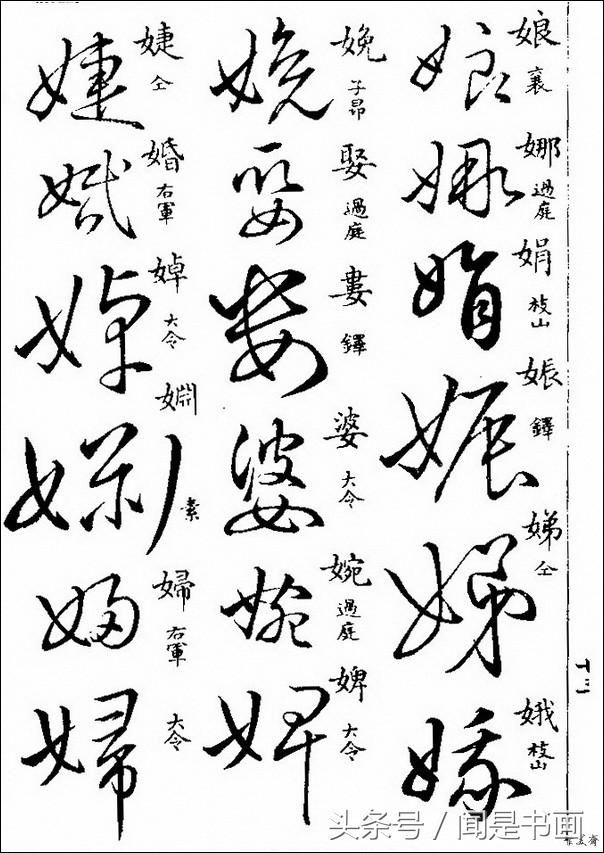 娘 襄
娜 過庭
娟 枝山
娠 鐸
娣 仝
娥 枝山
娩 子昂
娶 過庭
婁 鐸
婆 大令
婉 過庭
婢 大令
婕 仝
婚 右軍
婥 大令
嫻 素
婦 右軍
大令
头条号 / 闻是书画